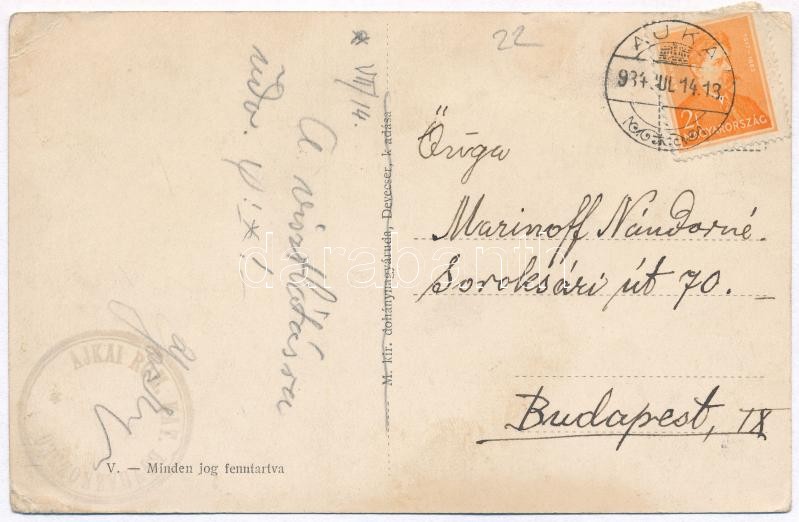 22
AJKA
934 JUL. 14. 13
2f
MAGYARORSZÁG
* VII/14.
A viszontlátásra
üdv.
M. kir. dohánynagyáruda, Devecser, k adása
Marinoff Nándorné.
Soroksári út 70.
Budapest, IX
AJKAI RÓM. KAT.
V. — Minden jog fenntartva
darabanth